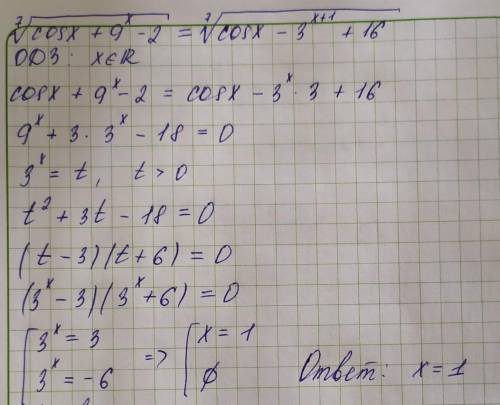 ⁷√(cosx + 9^x - 2) = ⁷√(cosx - 3^(x+1) + 16)
ОДЗ: x∈R
cosx + 9^x - 2 = cosx - 3^x · 3 + 16
9^x + 3 · 3^x - 18 = 0
3^x = t, t > 0
t² + 3t - 18 = 0
(t - 3)(t + 6) = 0
(3^x - 3)(3^x + 6) = 0
[3^x = 3 => [x = 1
3^x = -6 ∅ Ответ: x = 1